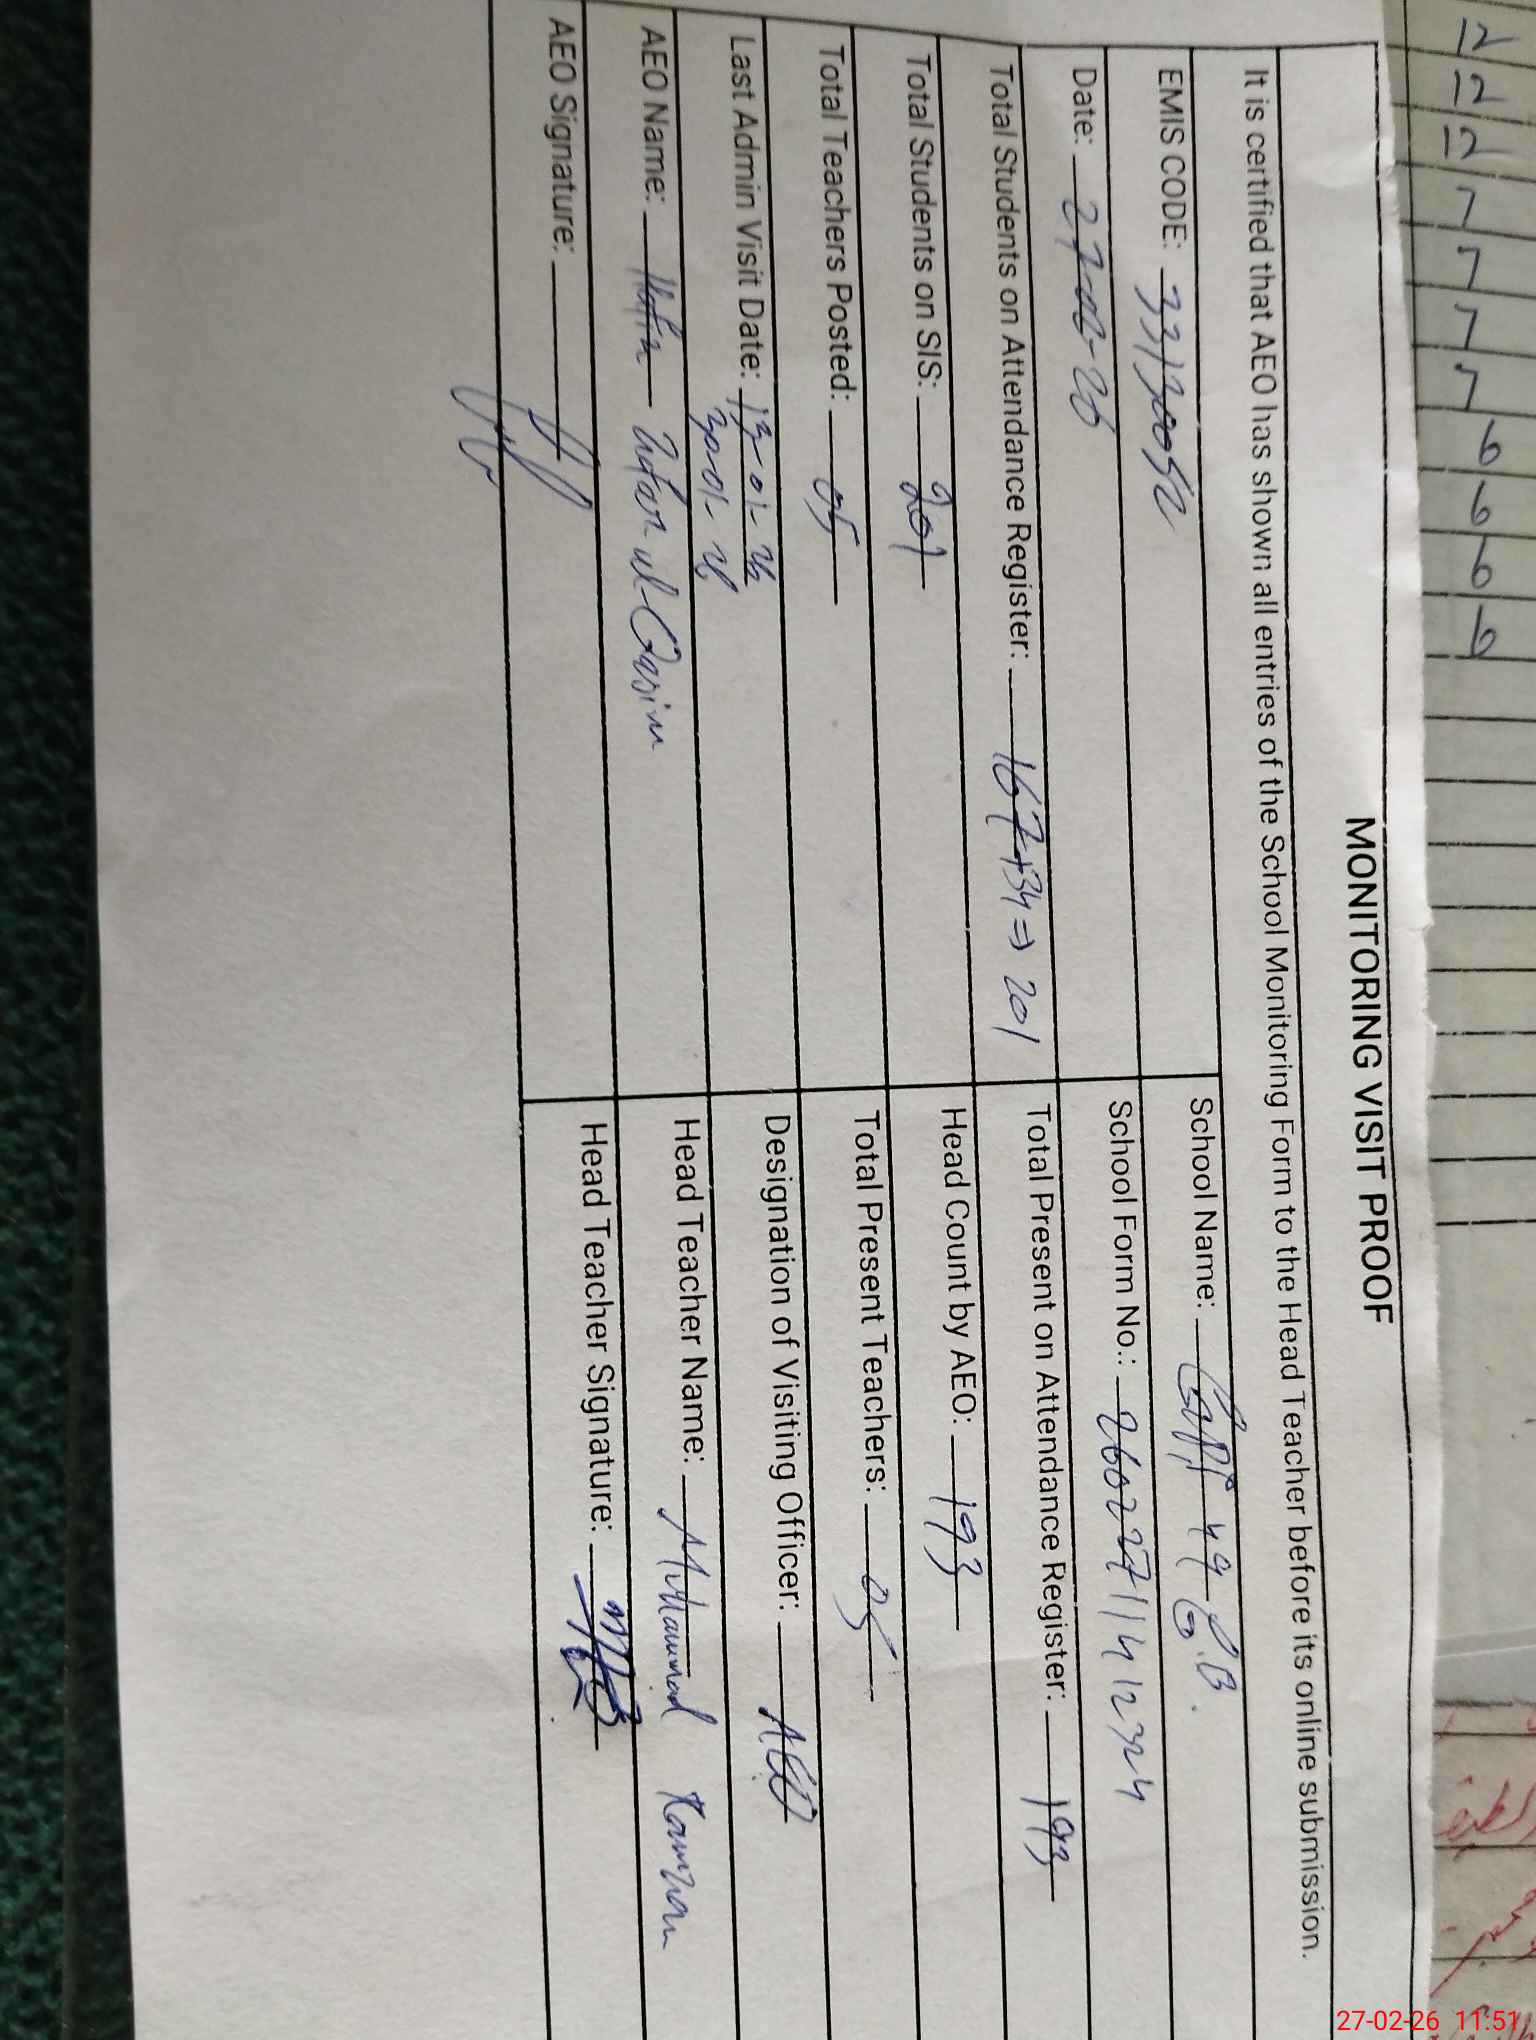 MONITORING VISIT PROOF
It is certified that AEO has shown all entries of the School Monitoring Form to the Head Teacher before its online submission.
EMIS CODE: 33130052 School Name: 49 G.B.
Date: 27-02-26 School Form No.: 26022711412324
Total Students on Attendance Register: 167+34⇒201 Total Present on Attendance Register: 193
Total Students on SIS: 201 Head Count by AEO: 193
Total Teachers Posted: 05 Total Present Teachers: 05
Last Admin Visit Date: 13-01-26 Designation of Visiting Officer: AEO
30-01-26
AEO Name: ul Qasim Head Teacher Name: Muhammad Kamran
AEO Signature: Head Teacher Signature:
12
12
12
7
7
7
7
6
6
6
6
27-02-26 11:51